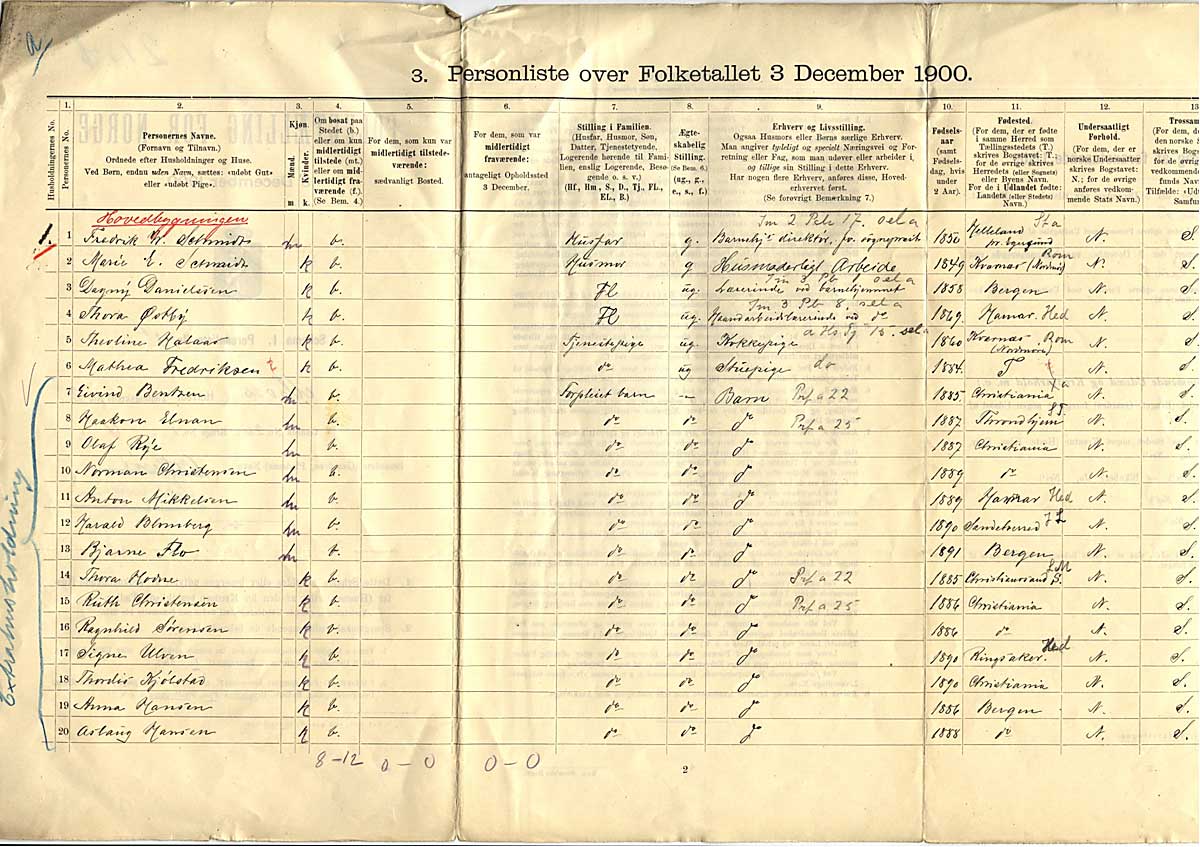 a
3. Personliste over Folketallet 3 December 1900.
Husholdningernes No.
Personernes No.
1.
2.
Personernes Navne.
(Fornavn og Tilnavn.)
Ordnede efter Husholdninger og Huse.
Ved Børn, endnu uden Navn, sættes: «udøbt Gut»
eller «udøbt Pige».
3.
Kjøn.
Mænd.
Kvinder.
m
k
4.
Om bosat paa
Stedet (b.)
eller om kun
midlertidigt
tilstede (mt.)
eller om mid-
lertidigt fra-
værende (f.)
(Se Bem. 4.)
5.
For dem, som kun var
midlertidigt tilstede-
værende:
sædvanligt Bosted.
6.
For dem, som var
midlertidigt
fraværende:
antageligt Opholdssted
3 December.
7.
Stilling i Familien.
(Husfar, Husmor, Søn,
Datter, Tjenestetyende,
Logerende hørende til Fami-
lien, enslig Logerende, Besø-
gende o. s. v.)
(Hf., Hm., S., D., Tj., FL.,
EL., B.)
8.
Ægte-
skabelig
Stilling.
(Se Bem. 6.)
(ug., g.,
e., s., f.)
9.
Erhverv og Livsstilling.
Ogsaa Husmors eller Børns særlige Erhverv.
Man angiver tydeligt og specielt Næringsvei og For-
retning eller Fag, som man udøver eller arbeider i,
og tillige sin Stilling i dette Erhverv.
Har nogen flere Erhverv, anføres disse, Hoved-
erhvervet først.
(Se forøvrigt Bemerkning 7.)
10.
Fødsels-
aar
(samt
Fødsels-
dag, hvis
under
2 Aar).
11.
Fødested.
(For dem, der er fødte
i samme Herred som
Tællingsstedets (T.)
skrives Bogstavet: T.
for de øvrige skrives
Herredets (eller Sognets)
eller Byens Navn.
For de i Udlandet fødte:
Landets (eller Stedets)
Navn.)
12.
Undersaatligt
Forhold.
(For dem, der er
norske Undersaatter
skrives Bogstavet:
N.; for de øvrige
anføres vedkom-
mende Stats Navn.)
13
Trossam
(For dem, d
den norske S
skrives Bogs
for de øvrige
vedkommend
funds Nav
Tilfælde: «Ud
Samfu
Hovedbygningen
1.
1 Fredrik W. Schmidt m b. Husfar g. Barnehj. direktør, fv. sogneprest 1850 Helleland pr. Egersund Sta N. S.
2 Marie E. Schmidt k b. Husmor g Husmoderligt Arbeide 1849 Kværnæs (Nordmør) Rom N. S.
3 Dagny Danielsen k b. Fl ug. Lærerinde ved barnehjemmet 1858 Bergen N. S.
4 Thora Østby k b. Fl ug. Haandarbeidslærerinde ved do 1869 Hamar Hed N. S.
5 Theoline k b. Tjenestepige ug. Kokkepige 1860 Kværnæs (Nordmøre) Rom N. S.
6 Mathea Fredriksen k b. do ug Stuepige do 1884 T N. S.
7 Eivind Bentzen m b. Forpleiet barn – Barn Prf a 22 1885 Christiania N. S.
8 Haakon Elnan m b. do do do Prf a 25 1887 Throndhjem ST N. S.
9 Olaf Røe m b. do do do 1887 Christiania N. S.
10 Norman Christensen m b. do do do 1889 do N. S.
11 Anton Mikkelsen m b. do do do 1889 Hamar Hed N. S.
12 Harald Blomberg m b. do do do 1890 Sandeherred JL N. S.
13 Bjarne Flo m b. do do do 1891 Bergen N. S.
14 Thora Hodne k b. do do do Prf a 22 1885 Christianssand S. LM N. S.
15 Ruth Christensen k b. do do do Prf a 25 1886 Christiania N. S.
16 Ragnhild Sørensen k b. do do do 1886 do N. S.
17 Signe Ulven k b. do do do 1890 Ringsaker. Hed N. S.
18 Thordis Kjølstad k b. do do do 1890 Christiania N. S.
19 Anna Hansen k b. do do do 1886 Bergen N. S.
20 Aslaug Hansen k b. do do do 1888 do N. S.
8–12 0–0 0–0
2
Extrahusholdning